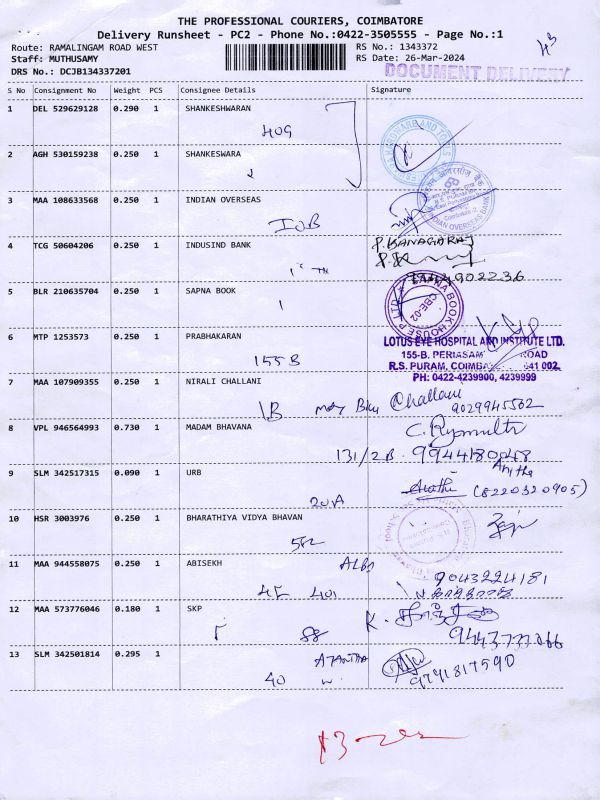 THE PROFESSIONAL COURIERS, COIMBATORE
Delivery Runsheet - PC2 - Phone No.:0422-3505555 - Page No.:1
Route: RAMALINGAM ROAD WEST
Staff: MUTHUSAMY
DRS No.: DCJB134337201
RS No.: 1343372
RS Date: 26-Mar-2024
DOCUMENT DELIVERY
S No Consignment No Weight PCS Consignee Details Signature
1 DEL 529629128 0.290 1 SHANKESHWARAN
409
2 AGH 530159238 0.250 1 SHANKESWARA
3 MAA 108633568 0.250 1 INDIAN OVERSEAS
IOB
4 TCG 50604206 0.250 1 INDUSIND BANK
P. KANAGARAJ
5 BLR 210635704 0.250 1 SAPNA BOOK
SAPNA BOOK HOUSE P LTD
CBE-02
6 MTP 1253573 0.250 1 PRABHAKARAN
155 B
LOTUS EYE HOSPITAL AND INSTITUTE LTD.
155-B, PERIASAM ROAD
R.S. PURAM, COIMBA 641 002.
PH: 0422-4239900, 4239999
7 MAA 107909355 0.250 1 NIRALI CHALLANI
1B Challani
9029945502
8 VPL 946564993 0.730 1 MADAM BHAVANA
131/2B 9944180048
9 SLM 342517315 0.090 1 URB
20A (8220320905)
10 HSR 3003976 0.250 1 BHARATHIYA VIDYA BHAVAN
582
11 MAA 944558075 0.250 1 ABISEKH
401 9043224181
12 MAA 573776046 0.180 1 SKP
88
13 SLM 342501814 0.295 1
40 9791817590